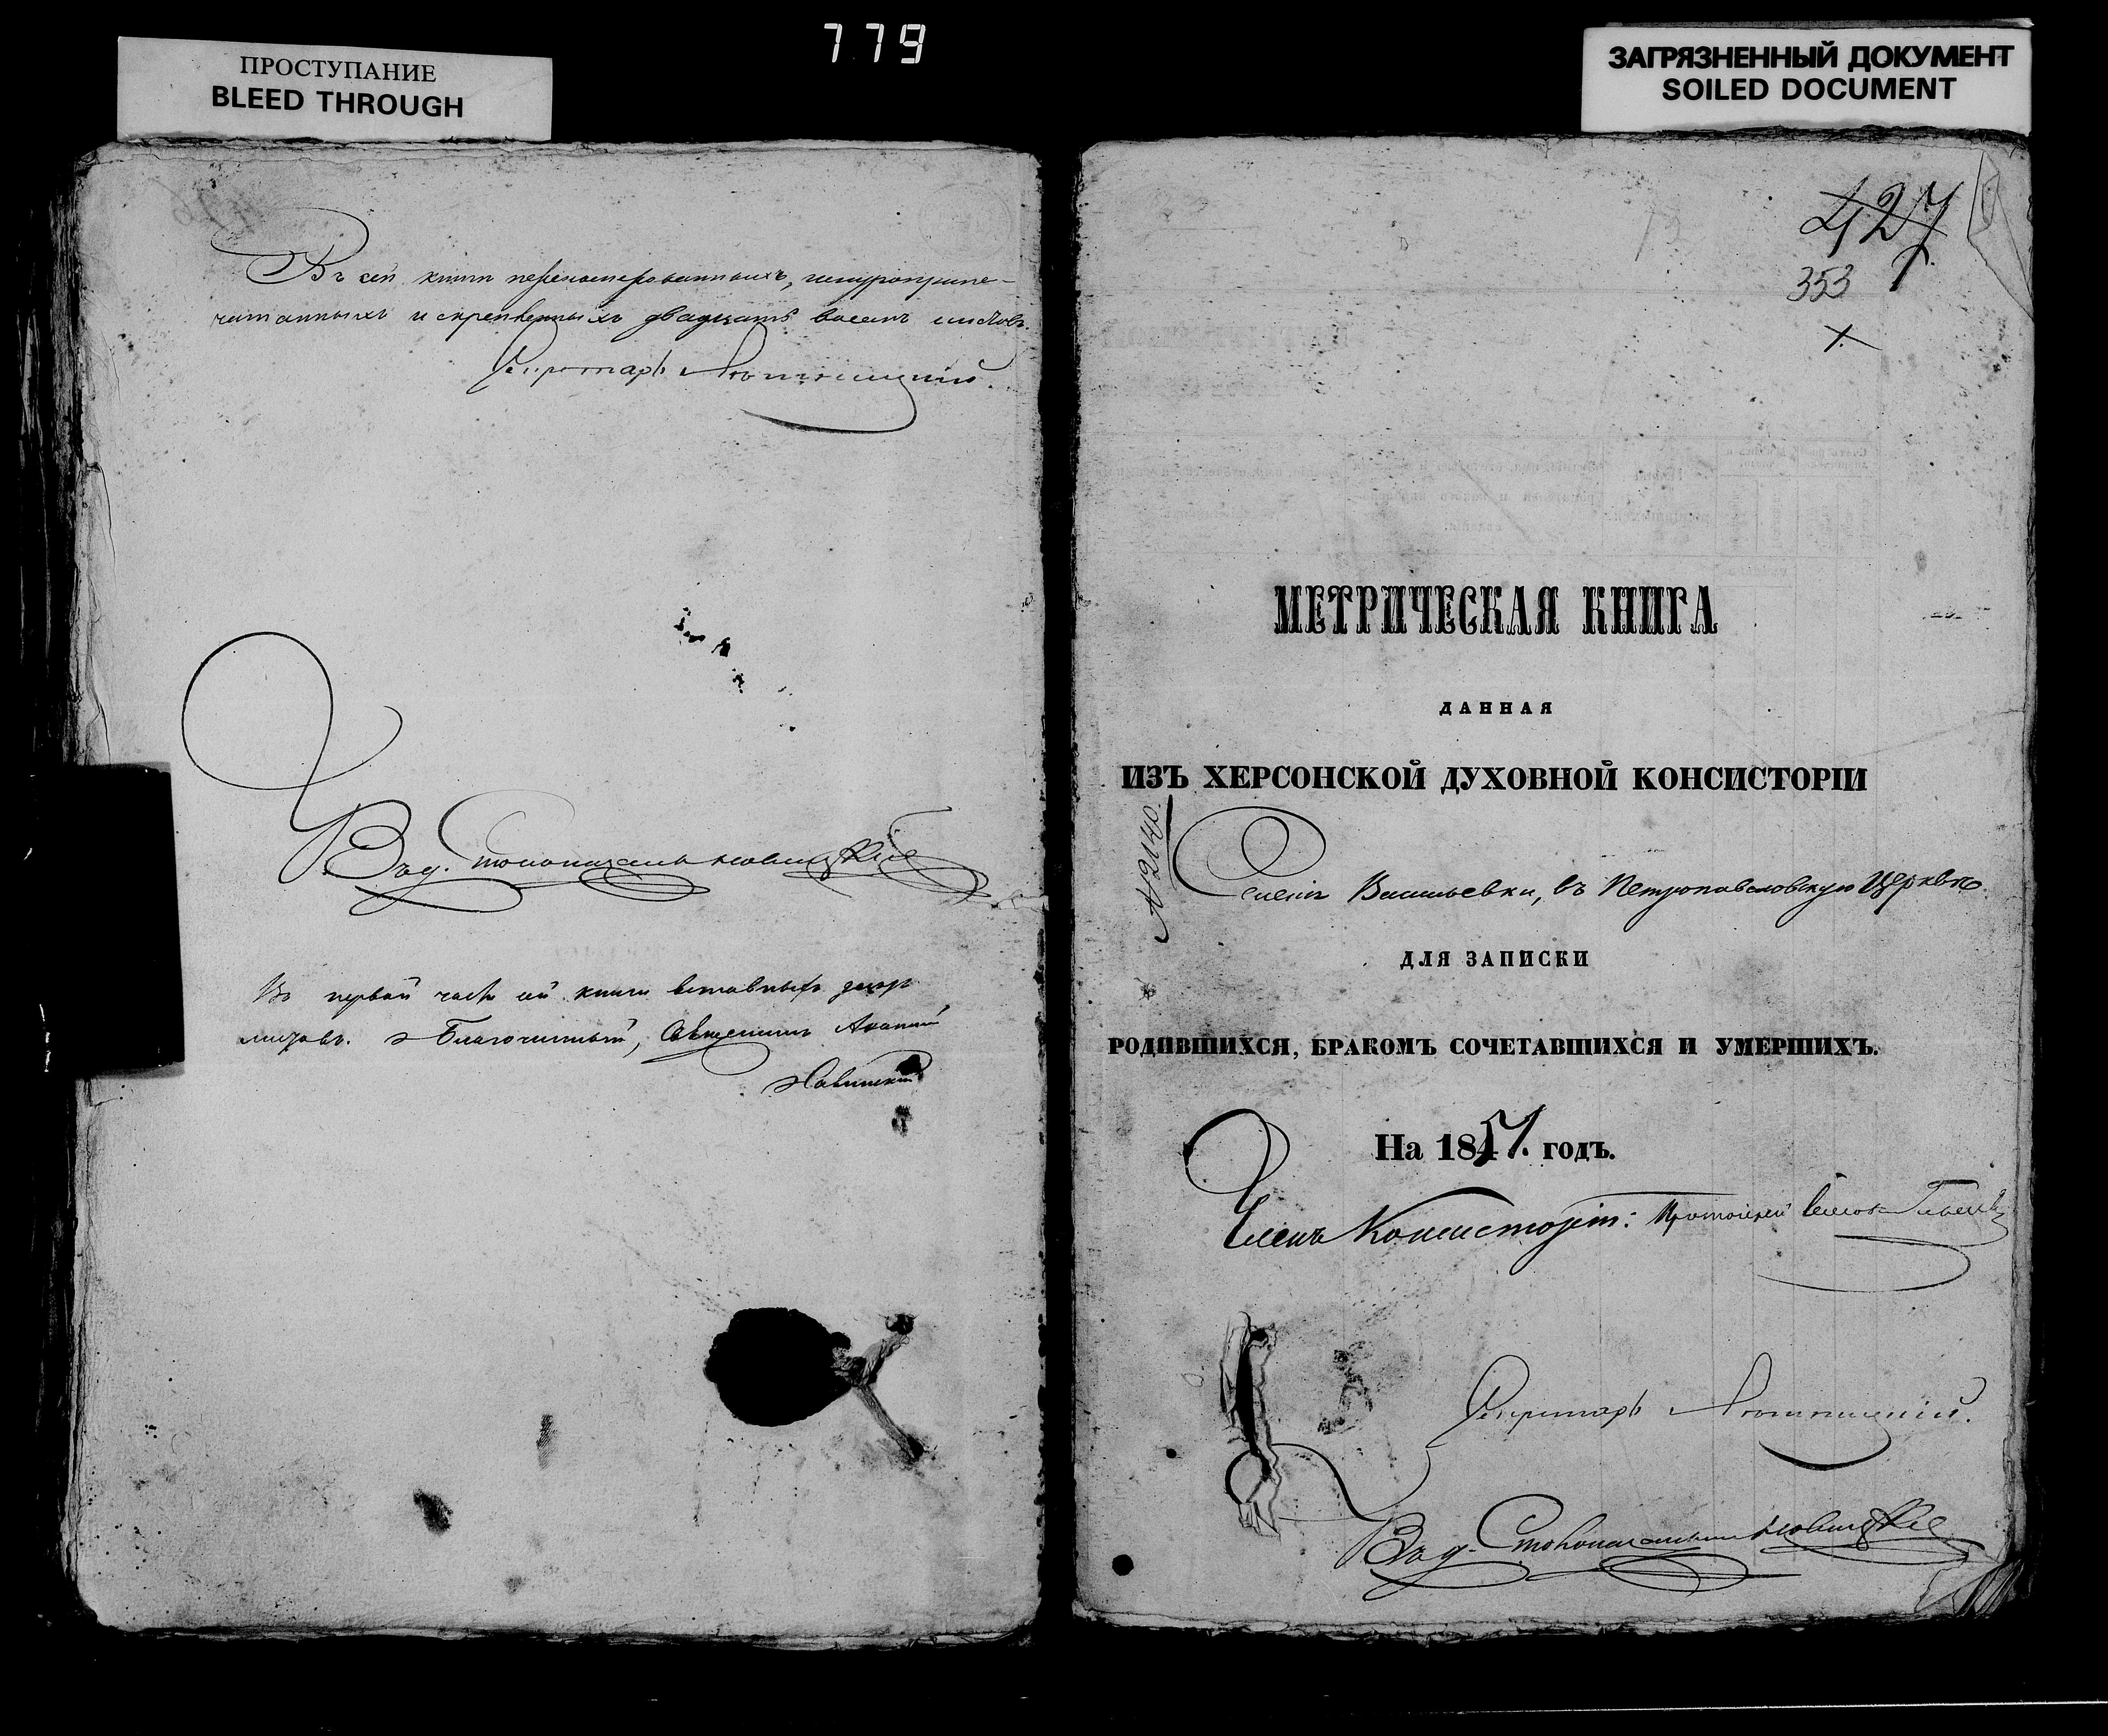 779
ПРОСТУПАНИЕ
BLEED THROUGH
ЗАГРЯЗНЕННЫЙ ДОКУМЕНТ
SOILED DOCUMENT
Въ сей книгѣ перенумерованныхъ, шнуроприпе-
чатанныхъ и скрепленныхъ двадцать восемь листовъ.
Секретарь
Въ первой части сей книги вставныхъ
листовъ. Благочинный, Священникъ
427
353
1.
МЕТРИЧЕСКАЯ КНИГА
ДАННАЯ
ИЗЪ ХЕРСОНСКОЙ ДУХОВНОЙ КОНСИСТОРІИ
№ 2140.
Селенія Васильевки, въ Петропавловскую Церковь
ДЛЯ ЗАПИСКИ
РОДИВШИХСЯ, БРАКОМЪ СОЧЕТАВШИХСЯ И УМЕРШИХЪ.
На 1851. годъ.
Членъ Консисторіи: Протоіерей
Секретарь